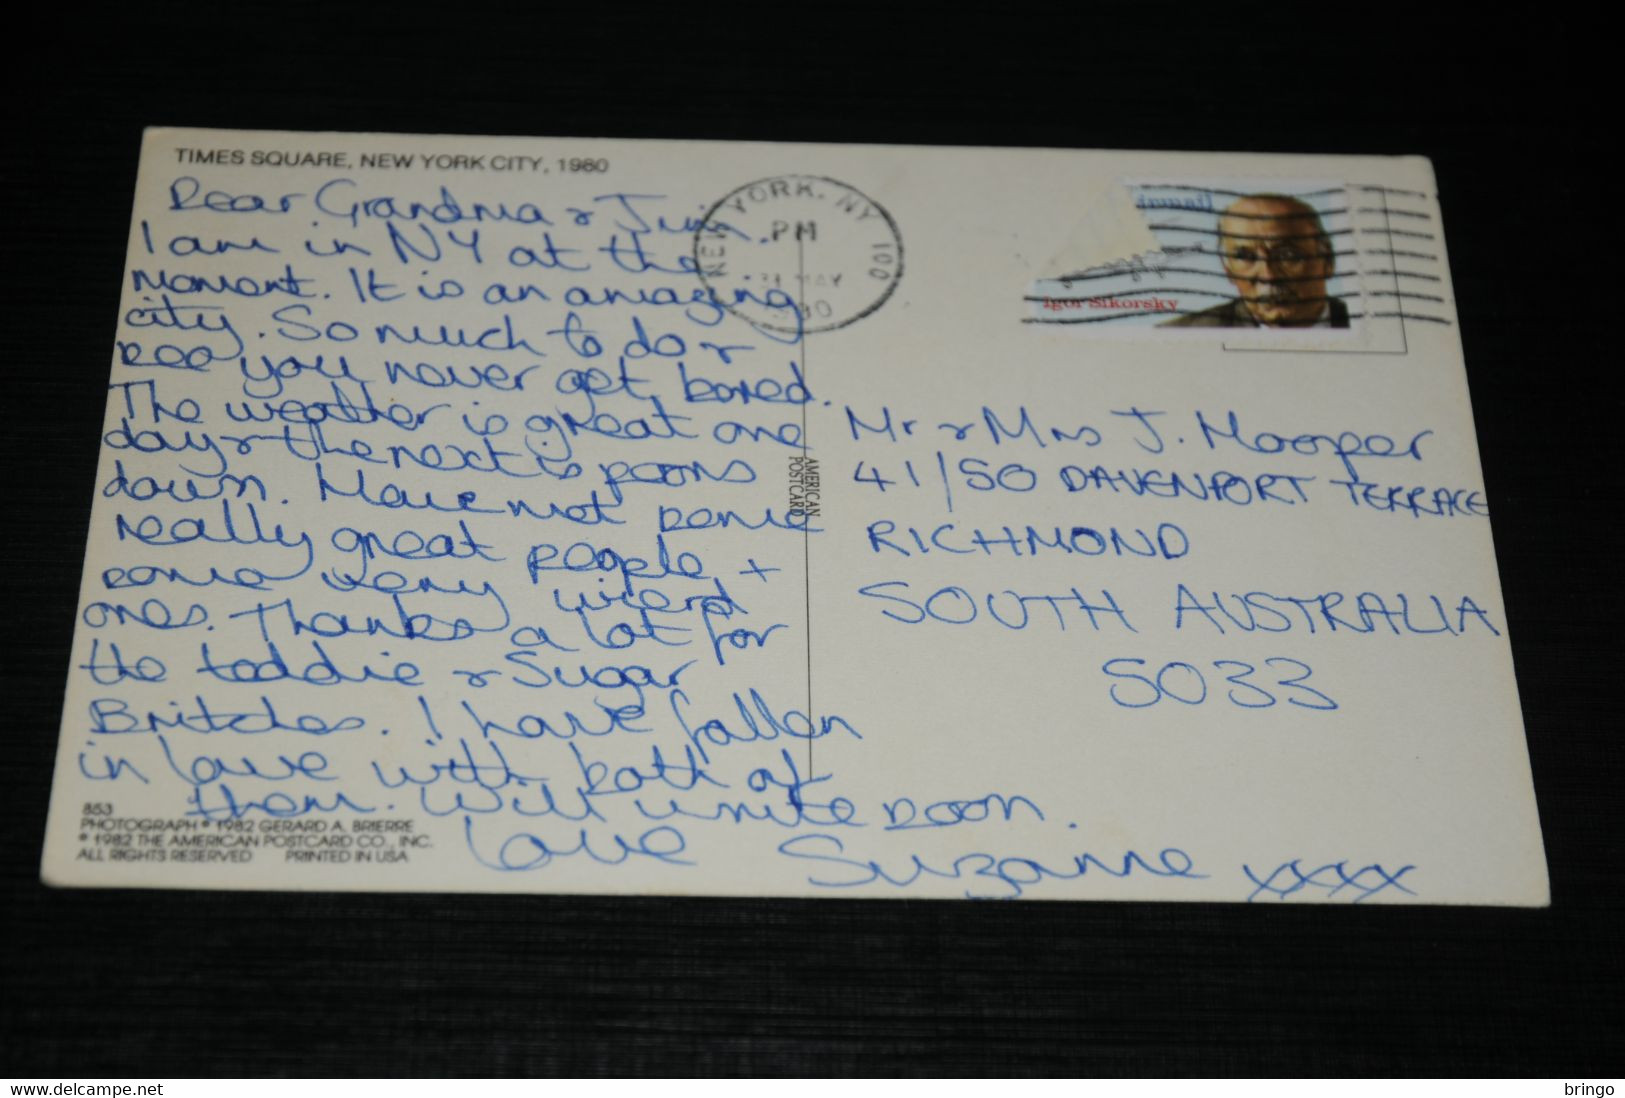 TIMES SQUARE, NEW YORK CITY, 1980
Dear Grandma & Jim,
I am in NY at the
moment. It is an amazing
city. So much to do &
see you never get bored.
The weather is great one
day & the next is poors
down. Have met some
really great people, +
some very wierd
ones. Thanks a lot for
the teddie & Sugar
Britches. I have fallen
in love with both of
them. Will write soon.
Love Suzanne xxxx
853
PHOTOGRAPH © 1982 GERARD A. BRIERRE
© 1982 THE AMERICAN POSTCARD CO., INC.
ALL RIGHTS RESERVED PRINTED IN USA
AMERICAN
POSTCARD
NEW YORK, NY 100
PM
31 MAY
Igor Sikorsky
Mr & Mrs J. Hooper
41/50 DAVENPORT TERRACE
RICHMOND
SOUTH AUSTRALIA
5033
delcampe.net
bringo